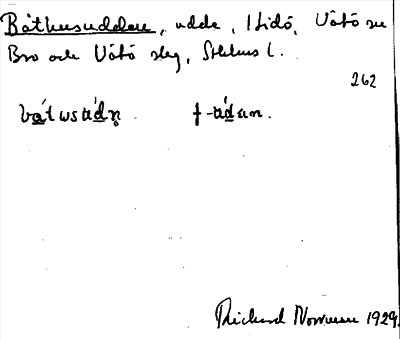 Båthusudden, udde, Lidö, Vätö sn
Bro och Vätö slg, Sthlms l.
262
bǻtusúdn̥ f -údan.
Rickard Norrman 1929.